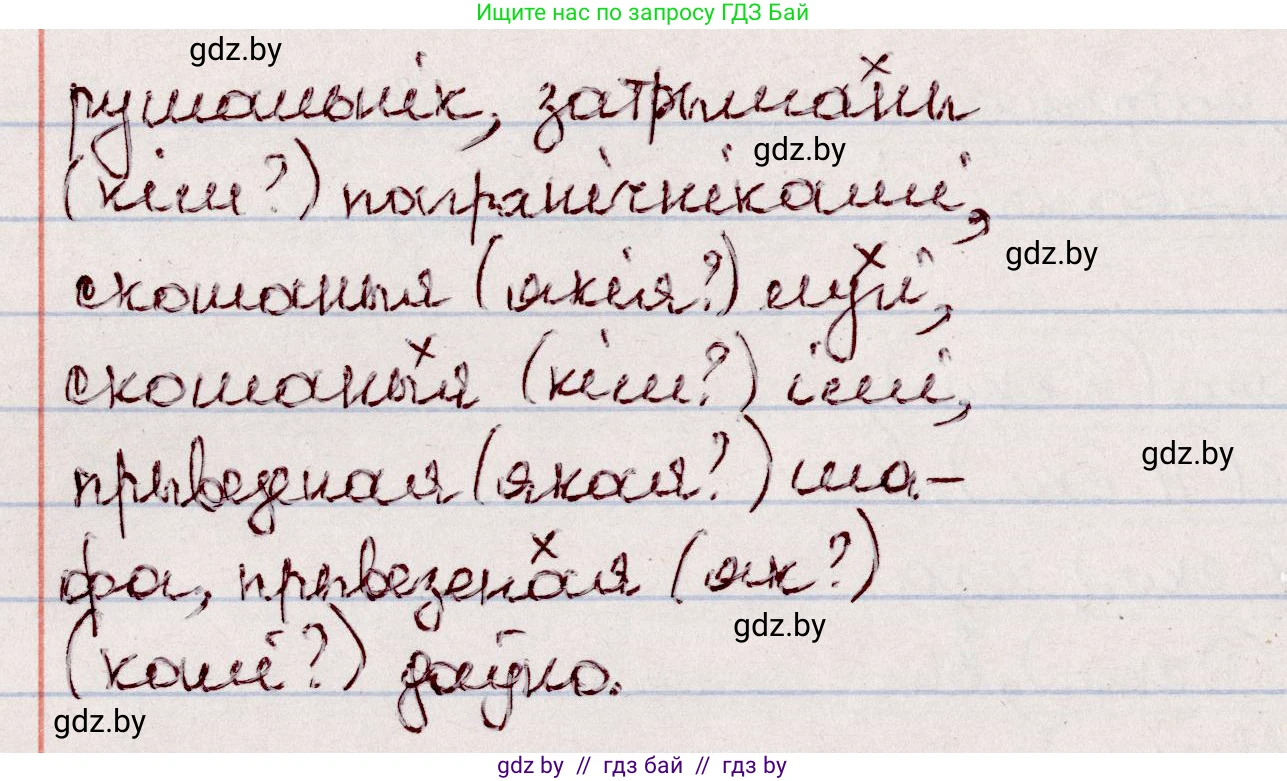 Ищите нас по запросу ГДЗ Бай
gdz.by
рушальнік, затрыманы
gdz.by
(кім?) пагранічнікамі,
gdz.by
скошаныя (якія?) лугі,
скошаныя (кім?) імі,
gdz.by
прывезеная (якая?) ша-
фа, прывезеная (як?)
gdz.by
(калі?) даўно.
gdz.by
gdz by // гдз бай // гдз by